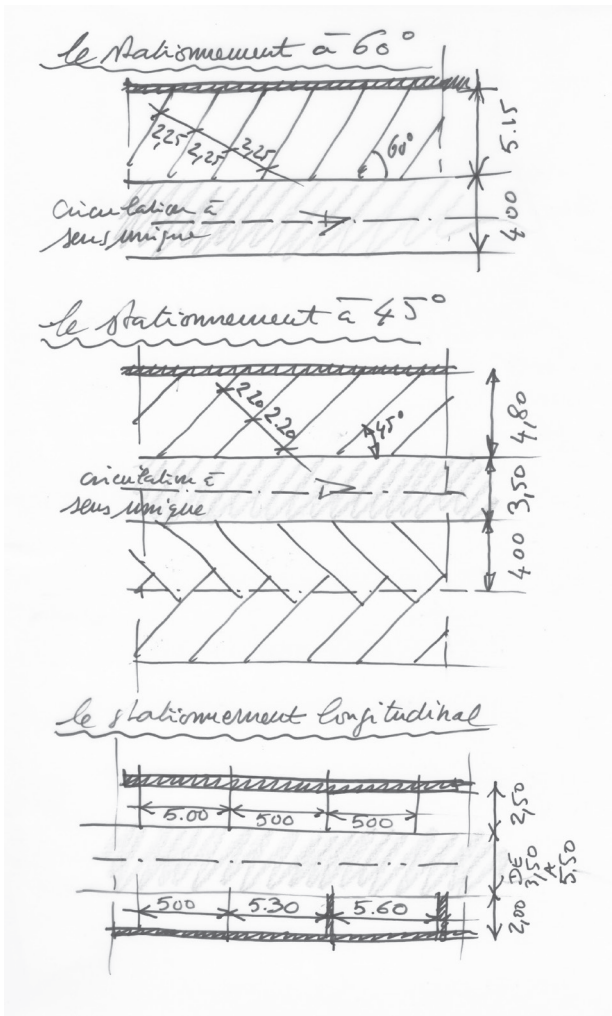 le stationnement à 60°
2,25
2,25
2,25
60°
5.15
circulation à
sens unique
400
le stationnement à 45°
220
2.20
45°
4,80
circulation à
sens unique
3,50
400
le stationnement longitudinal
5.00
500
500
2,50
DE
3,50
A
5.50
500
5.30
5.60
2,00